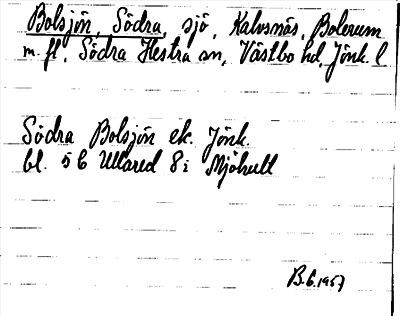 Bolsjön, Södra, sjö, Kalvsnäs, Bolerum
m. fl. Södra Hestra sn, Västbo hd, Jönk. l
Södra Bolsjön ek. Jönk.
bl. 5 C Ullared 8 i Mjöhult
B.G. 1957